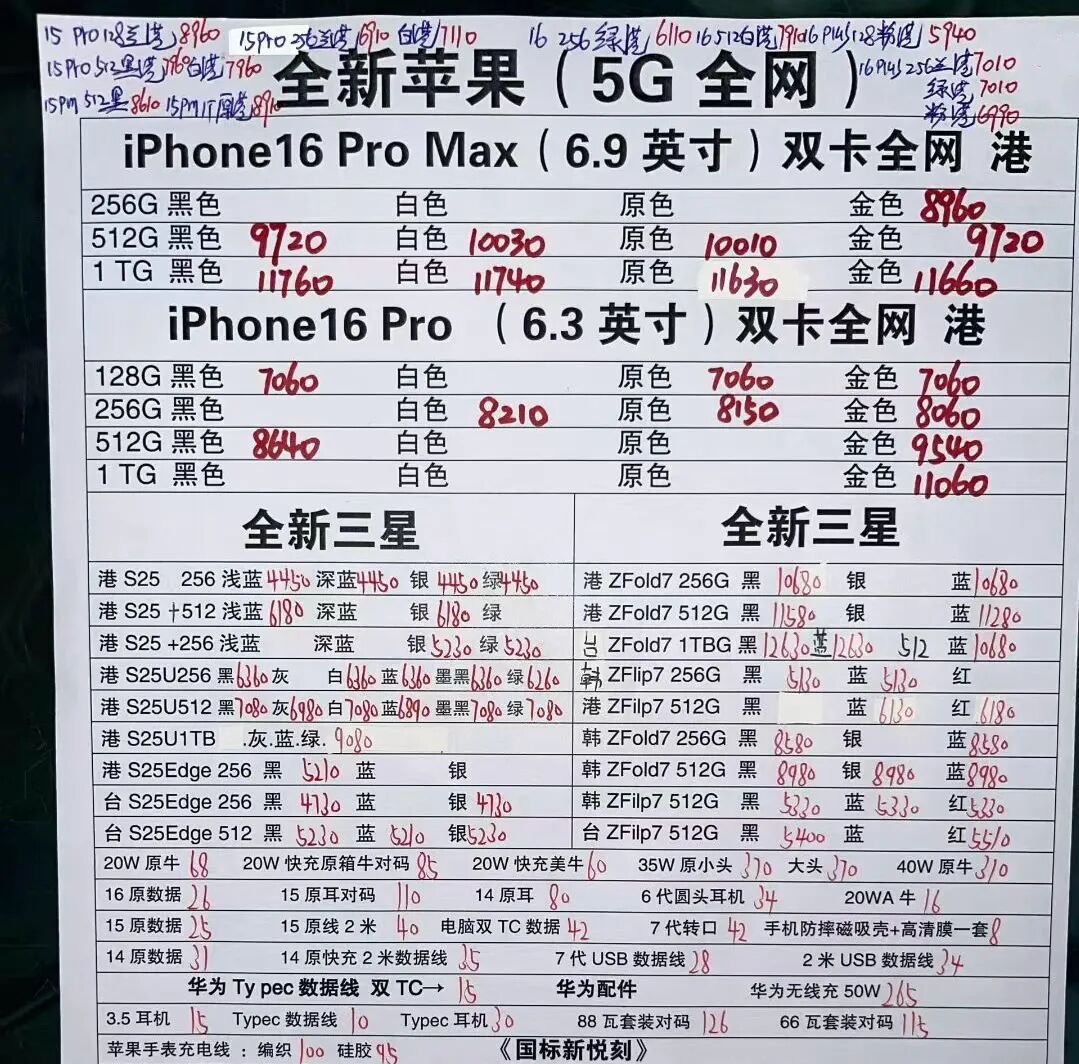 15 Pro 128兰港8960 15pro 256兰港6910 白港7110 16 256绿港6110 16 512白港7910 16Plus128粉港5940
15Pro 512黑港7960白港7960 16Plus 256兰港7010
绿港7010
15Pm 512黑8610 15pm 1T原港8910 粉港6990
全新苹果（5G 全网）
iPhone16 Pro Max（6.9 英寸）双卡全网 港
256G 黑色 白色 原色 金色 8960
512G 黑色 9720 白色 10030 原色 10010 金色 9720
1 TG 黑色 11760 白色 11740 原色 11630 金色 11660
iPhone16 Pro （6.3 英寸）双卡全网 港
128G 黑色 7060 白色 原色 7060 金色 7060
256G 黑色 白色 8210 原色 8150 金色 8060
512G 黑色 8640 白色 原色 金色 9540
1 TG 黑色 白色 原色 金色 11060
全新三星 全新三星
港 S25 256 浅蓝4450 深蓝4450 银 4450 绿4450 港 ZFold7 256G 黑 10680 银 蓝10680
港 S25 +512 浅蓝6180 深蓝 银 6180 绿 港 ZFold7 512G 黑 11580 银 蓝 11280
港 S25 +256 浅蓝 深蓝 银5230 绿 5230 台 ZFold7 1TBG 黑12630蓝12630 512 蓝 10680
港 S25U256 黑6360灰 白6360 蓝6360 墨黑6360 绿6260 韩 ZFlip7 256G 黑 5130 蓝 5130 红
港 S25U512 黑7080灰6980白7080蓝6890墨黑7080 绿7080 港 ZFilp7 512G 黑 蓝 6130 红 6180
港 S25U1TB .灰.蓝.绿. 9080 韩 ZFold7 256G 黑 8580 银 蓝8580
港 S25Edge 256 黑 5210 蓝 银 韩 ZFold7 512G 黑 8980 银 8980 蓝8980
台 S25Edge 256 黑 4730 蓝 银 4730 韩 ZFilp7 512G 黑 5330 蓝 5330 红5330
台 S25Edge 512 黑 5230 蓝 5210 银5230 台 ZFilp7 512G 黑 5400 蓝 红5510
20W 原牛 68 20W 快充原箱牛对码 85 20W 快充美牛60 35W 原小头 370 大头 370 40W 原牛310
16 原数据 26 15 原耳对码 110 14 原耳 80 6 代圆头耳机 34 20WA 牛 16
15 原数据 25 15 原线 2 米 40 电脑双 TC 数据 42 7 代转口 42 手机防摔磁吸壳+高清膜一套8
14 原数据 31 14 原快充 2 米数据线 35 7 代 USB 数据线 28 2 米 USB 数据线 34
华为 Ty pec 数据线 双 TC→ 15 华为配件 华为无线充 50W 265
3.5 耳机 15 Typec 数据线 10 Typec 耳机30 88 瓦套装对码 126 66 瓦套装对码 115
苹果手表充电线 : 编织 100 硅胶 95 《国标新悦刻》